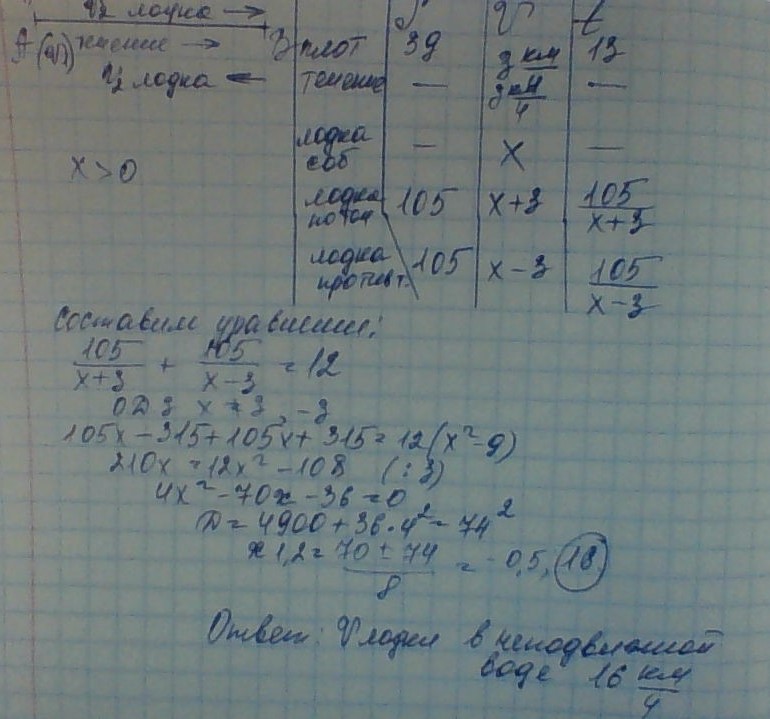 лодка →
S V t
течение →
плот 39 3 км/ч 13
лодка ←
течение — 3 км/ч —
лодка соб — x —
x > 0
лодка по теч 105 x+3 105/(x+3)
лодка против т. 105 x-3 105/(x-3)
Составим уравнение:
105/(x+3) + 105/(x-3) = 12
ОДЗ x ≠ 3, -3
105x - 315 + 105x + 315 = 12(x² - 9)
210x = 12x² - 108 (:3)
4x² - 70x - 36 = 0
D = 4900 + 36·4² = 74²
x 1,2 = (70 ± 74)/8 = -0,5, 18
Ответ: V лодки в неподвижной
воде 16 км/ч